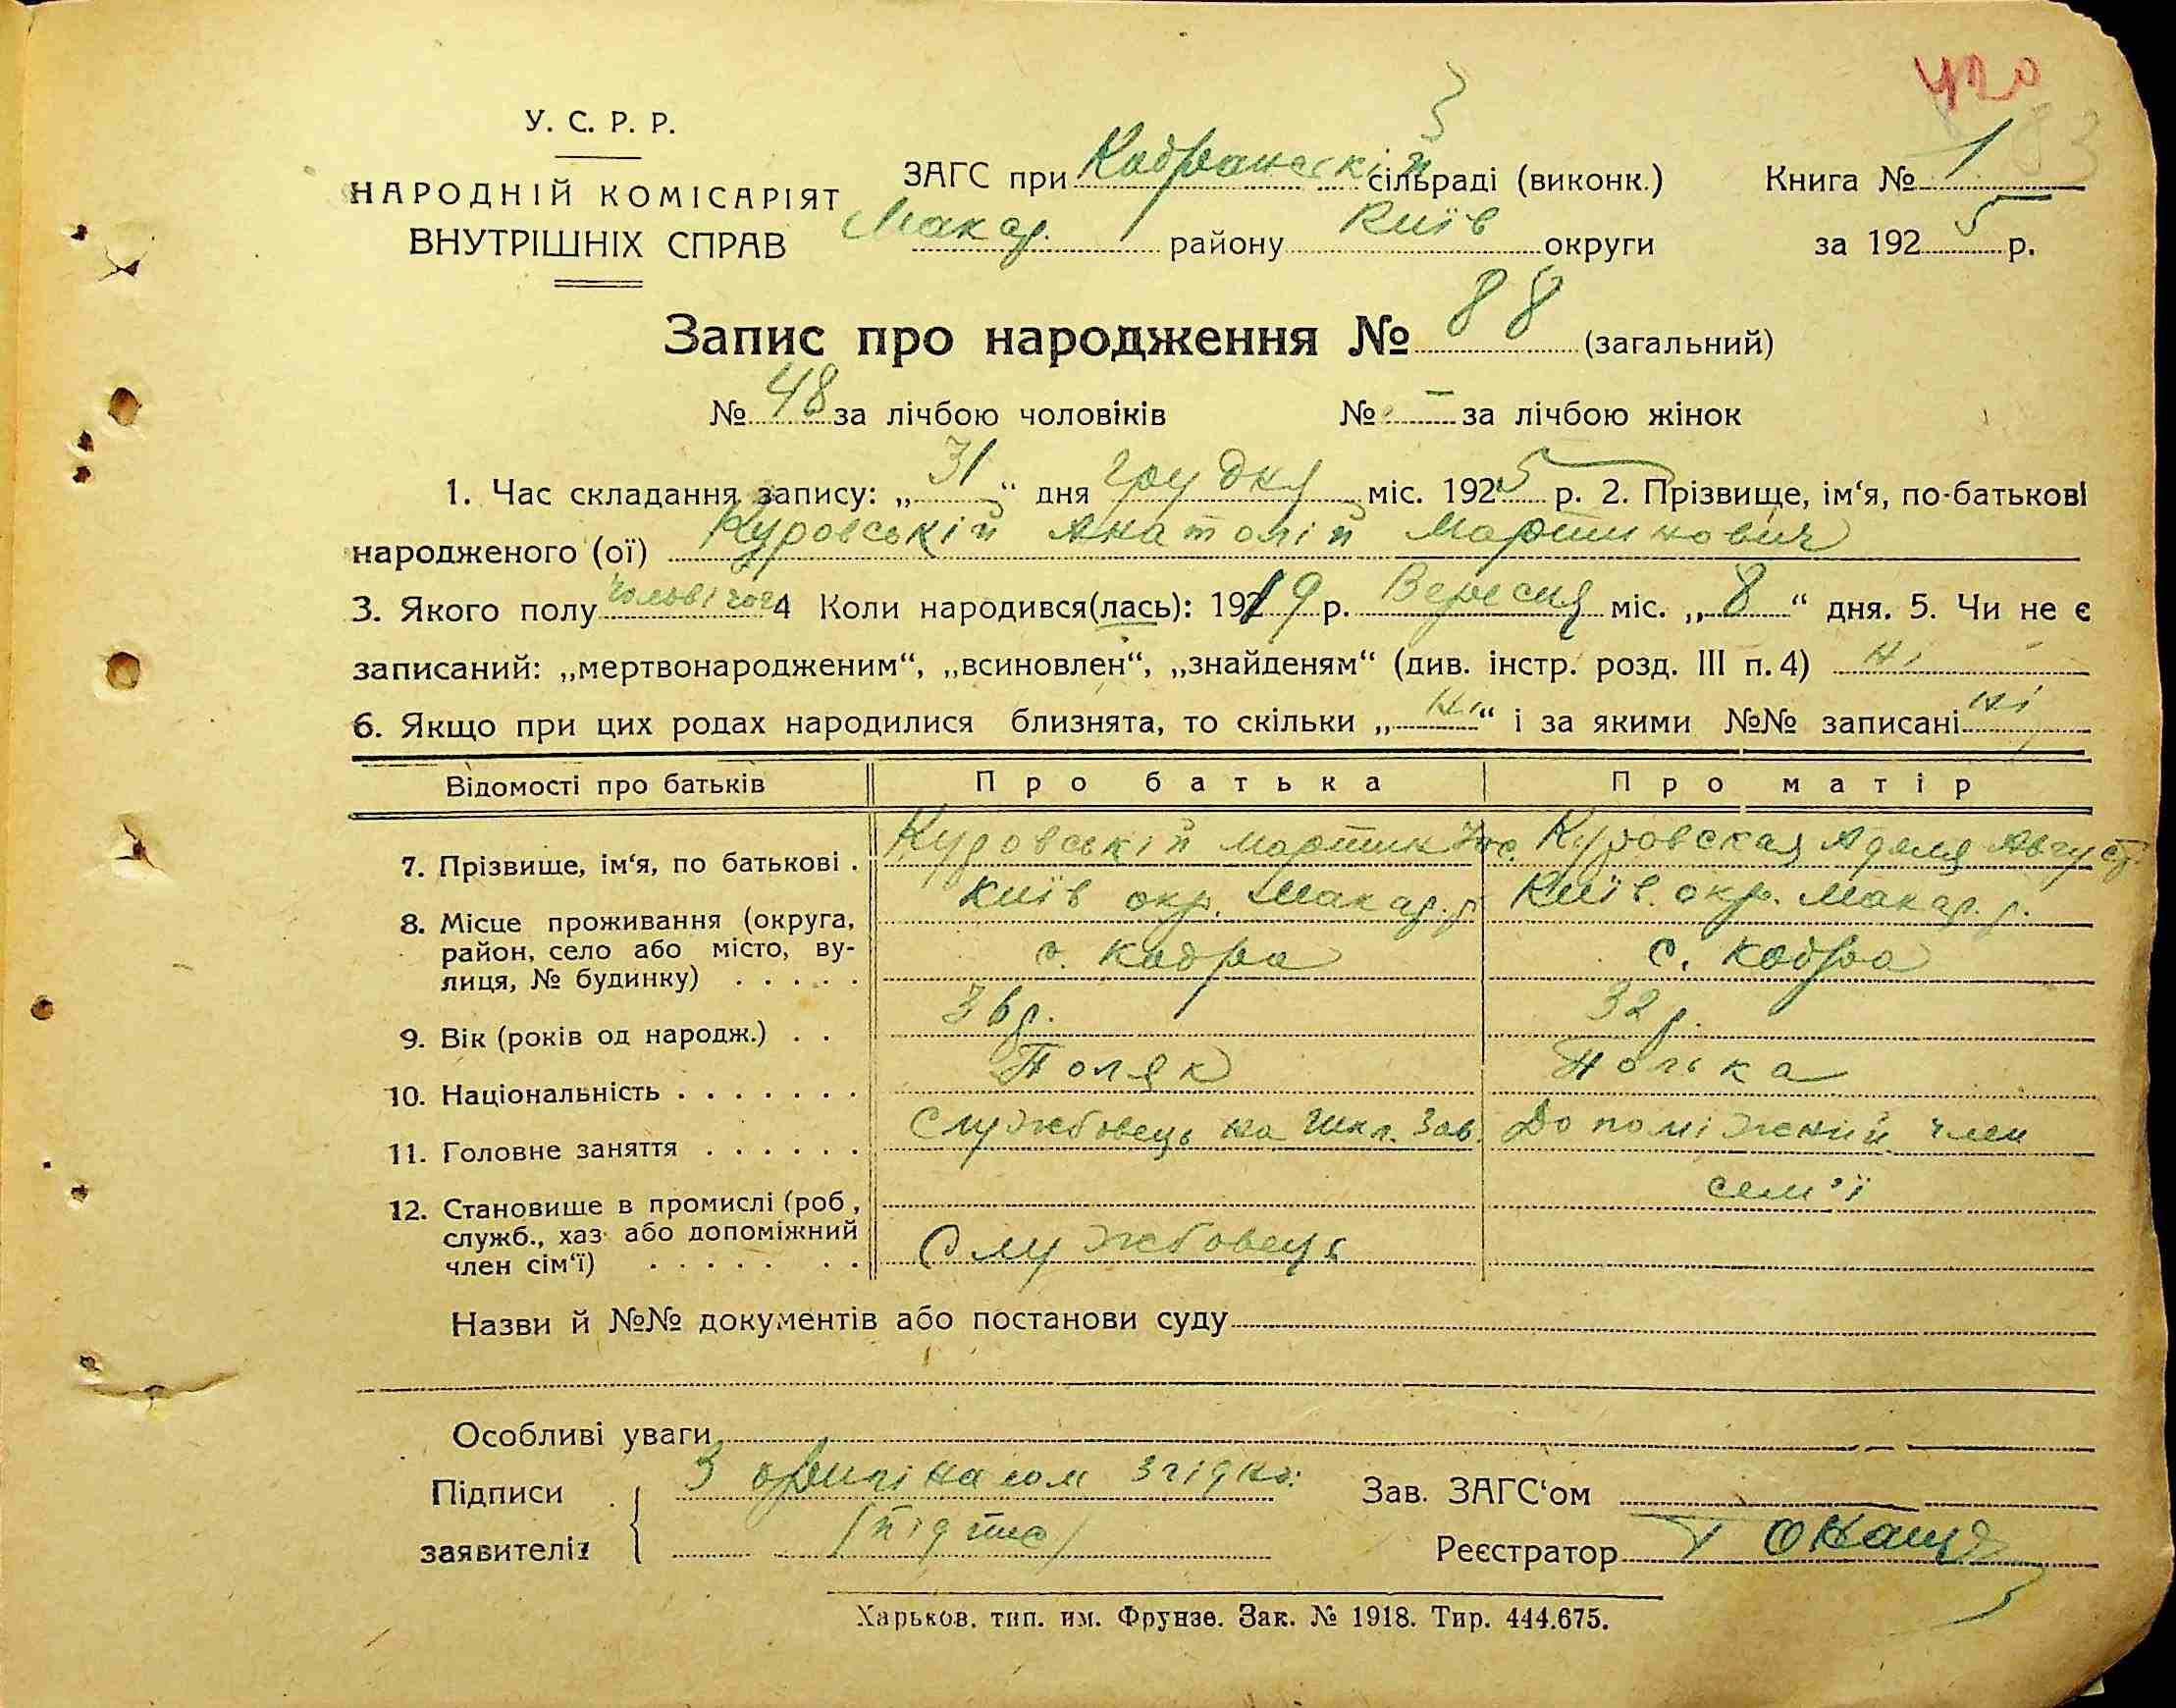 420
У. С. Р. Р.
НАРОДНІЙ КОМІСАРІЯТ
ВНУТРІШНІХ СПРАВ
ЗАГС при Кодранскій сільраді (виконк.)
Макар. району Київ округи
Книга № 1
за 1925 р.
Запис про народження № 88 (загальний)
№ 48 за лічбою чоловіків № – за лічбою жінок
1. Час складання запису: „31“ дня грудня міс. 1925 р. 2. Прізвище, ім‘я, по-батькові
народженого (ої) Куровській Анатолій Мартинович
3. Якого полу чоловічог 4 Коли народився(лась): 1919 р. Вересня міс. „8“ дня. 5. Чи не є
записаний: „мертвонародженим“, „всиновлен“, „знайденям“ (див. інстр. розд. III п. 4) ні
6. Якщо при цих родах народилися близнята, то скільки „ні“ і за якими №№ записані ні
Відомості про батьків Про батька Про матір
7. Прізвище, ім‘я, по батькові . Куровській Мартин Куровская Аделя Август.
8. Місце проживання (округа, район, село або місто, вулиця, № будинку) . . . . .
Київ окр. Макар. р. Київ. окр. Макар. р.
с. Кодра с. Кодра
9. Вік (років од народж.) . . 36 р. 32 р.
10. Національність . . . . . . . Поляк Полька
11. Головне заняття . . . . . . Службовець на Шкл. Зав. Допоміжний член
сем'ї
12. Становище в промислі (роб, служб., хаз або допоміжний член сім‘ї) . . . . . . . Службовець
Назви й №№ документів або постанови суду
Особливі уваги
Підписи заявителів З оригіналом згідно:
(підпис)
Зав. ЗАГС‘ом
Реєстратор
Харьков. тип. им. Фрунзе. Зак. № 1918. Тир. 444.675.